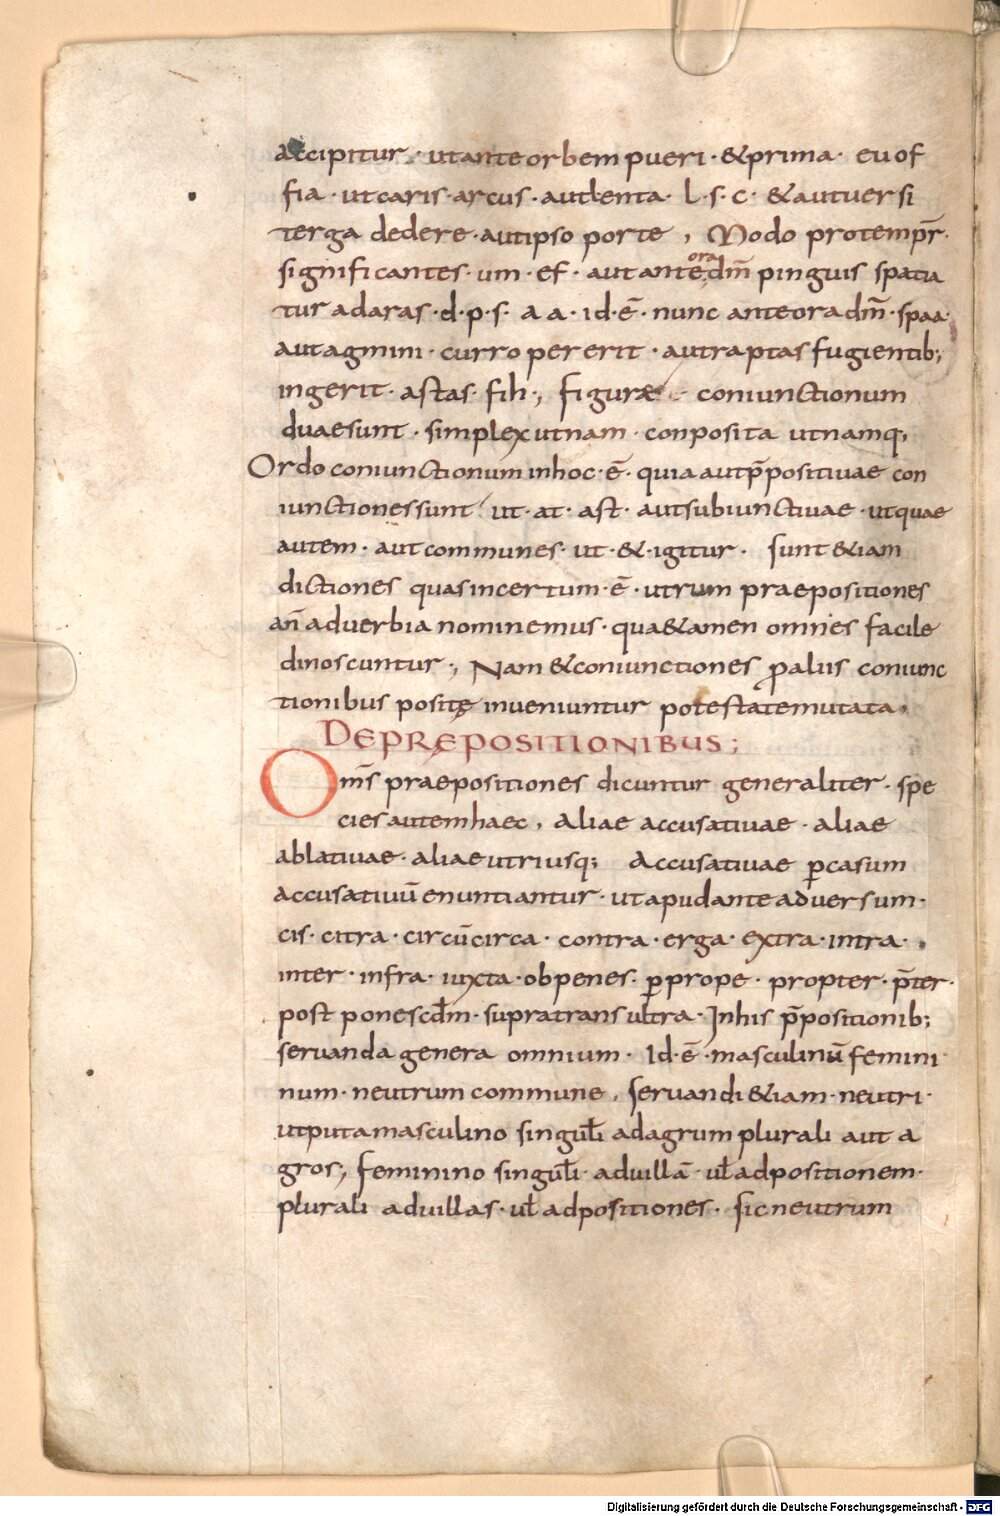 accipitur · ut ante orbem pueri · & prima · eu of
fia · ut caris · arcus · aut lenta · l · s · c · & aut uersi
terga dedere · aut ipso porte , Modo pro temp̄r ·
significantes · um · ef · aut ante ora dm̄ pinguis spatia
tur ad aras · d · p · s · a a · id · ē · nunc ante ora dm̄ · spaa
aut agmini · curro per erit · aut raptas fugientib;
ingerit · astas · fih ·, figuræ · coniunctionum
duae sunt · simplex ut nam · conposita ut namq;
Ordo coniunctionum in hoc · ē · quia aut p̄positiuae con
iunctiones sunt ut · at · ast · aut subiunctiuae · ut quae
autem · aut communes · ut · & · igitur · sunt &iam
dictiones quas incertum · ē · utrum praepositiones
an̄ aduerbia nominemus · quae &amen omnes facile
dinoscuntur ·, Nam & coniunctiones ꝓ aliis coniunc
tionibus positę inueniuntur potestate mutata ·
DE PRĘPOSITIONIBUS ;
Om̄s praepositiones dicuntur generaliter · spe
cies autem haec , aliae accusatiuae · aliae
ablatiuae · aliae utriusq; Accusatiuae ꝑ casum
accusatiuū enuntiantur · ut apud ante aduersum ·
cis · citra · circū circa · contra · erga · extra · intra ·
inter · infra · iuxta · ob penes · ꝑ prope · propter · p̄ter ·
post pones cdm̄ · supra trans ultra · In his p̄positionib;
seruanda genera omnium · Id · ē · masculinū femini
num · neutrum commune , seruandi &iam · neutri ·
ut puta masculino singul̄i ad agrum plurali aut a
gros ;, feminino singul̄i · ad uillā · ul̄ ad positionem ·
plurali ad uillas · ul̄ ad positiones · sic neutrum
Digitalisierung gefördert durch die Deutsche Forschungsgemeinschaft - DFG